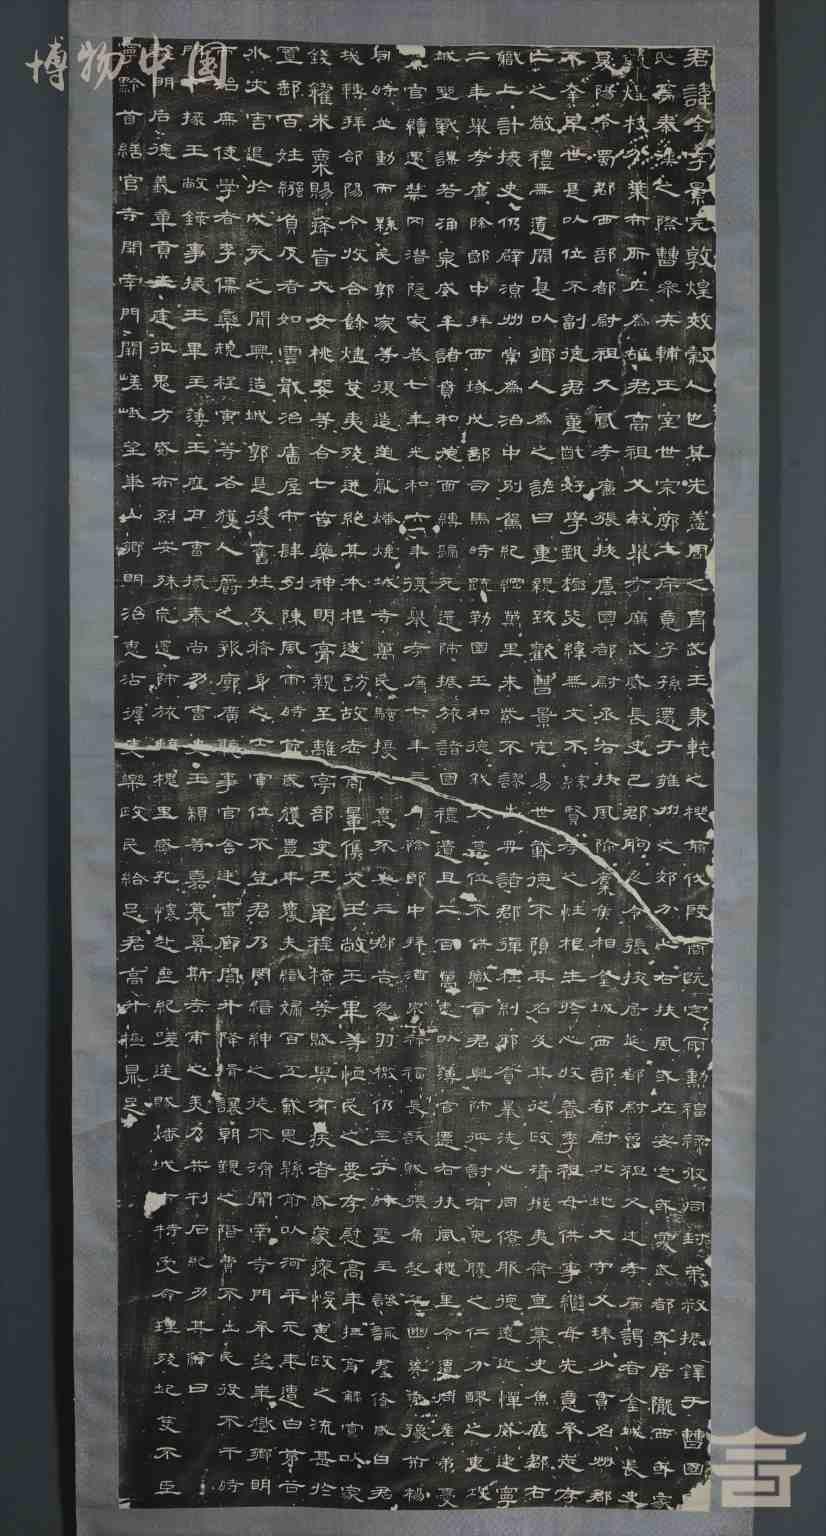 博物中国
君諱全字景完敦煌效穀人也其先蓋周之胄武王秉乾之機翦伐殷商既定爾勳福祿攸同封弟叔振鐸于曹國
氏焉秦漢之際曹參夾輔王室世宗廓土斥竟子孫遷于雍州之郊分止右扶風或在安定或處武都或居隴西或家
煌枝分葉布所在為雄君高祖父敏舉孝廉武威長史巴郡朐忍令張掖居延都尉曾祖父述孝廉謁者金城長史
夏陽令蜀郡西部都尉祖父鳳孝廉張掖屬國都尉丞右扶風隃麋侯相金城西部都尉北地大守父琫少貫名州郡
不幸早世是以位不副德君童齔好學甄極毖緯無文不綜賢孝之性根生於心收養季祖母供事繼母先意承志存
亡之敬禮無遺闕是以鄉人為之諺曰重親致歡曹景完易世載德不隕其名及其從政清擬夷齊直慕史魚歷郡右
職上計掾史仍辟涼州常為治中別駕紀綱萬里朱紫不謬出典諸郡彈枉糾邪貪暴洗心同僚服德遠近憚威建寧
二年舉孝廉除郎中拜西域戊部司馬時疏勒國王和德弒父篡位不供職貢君興師征討有兗膿之仁分醪之惠攻
城野戰謀若涌泉威牟諸賁和德面縛歸死還師振旅諸國禮遺且二百萬悉以薄官遷右扶風槐里令遭同產弟憂
官續遇禁冈潛隱家巷七年光和六年復舉孝廉七年三月除郎中拜酒泉祿福長訞賊張角起兵幽冀兗豫荊楊
同時並動而縣民郭家等復造逆亂燔燒城寺萬民騷擾人裹不安三郡告急羽檄仍至于時聖主諮諏群僚咸曰君
哉轉拜郃陽令收合餘燼芟夷殘迸絕其本根遂訪故老商量儁艾王敞王畢等恤民之要存慰高年撫育鰥寡以家
錢糴米粟賜癃盲大女桃婓等合七首藥神明膏親至離亭部吏王宰程橫等賦與有疾者咸蒙瘳悛惠政之流甚於
置郵百姓繈負反者如雲戢治廧屋市肆列陳風雨時節歲獲豐年農夫織婦百工戴恩縣前以河平元年遭白茅谷
水災害退於戊亥之間興造城郭是後舊姓及脩身之士官位不登君乃閔縉紳之徒不濟開南寺門承望華嶽鄉明
而治庶使學者李儒欒規程寅等各獲人爵之報廓廣聽事官舍廷曹廊閤升降揖讓朝覲之階費不出民役不干時
門下掾王敞錄事掾王畢主薄王歷戶曹掾秦尚功曹史王顓等嘉慕奚斯考甫之美乃共刊石紀功其辭曰
懿明后德義章貢王庭征鬼方威布烈安殊巟還師旅臨槐里感孔懷赴喪紀嗟逆賊燔城市特受命理殘圮芟不臣
寧黔首繕官寺開南門闕嵯峨望華山鄉明治惠沾渥吏樂政民給足君高升極鼎足